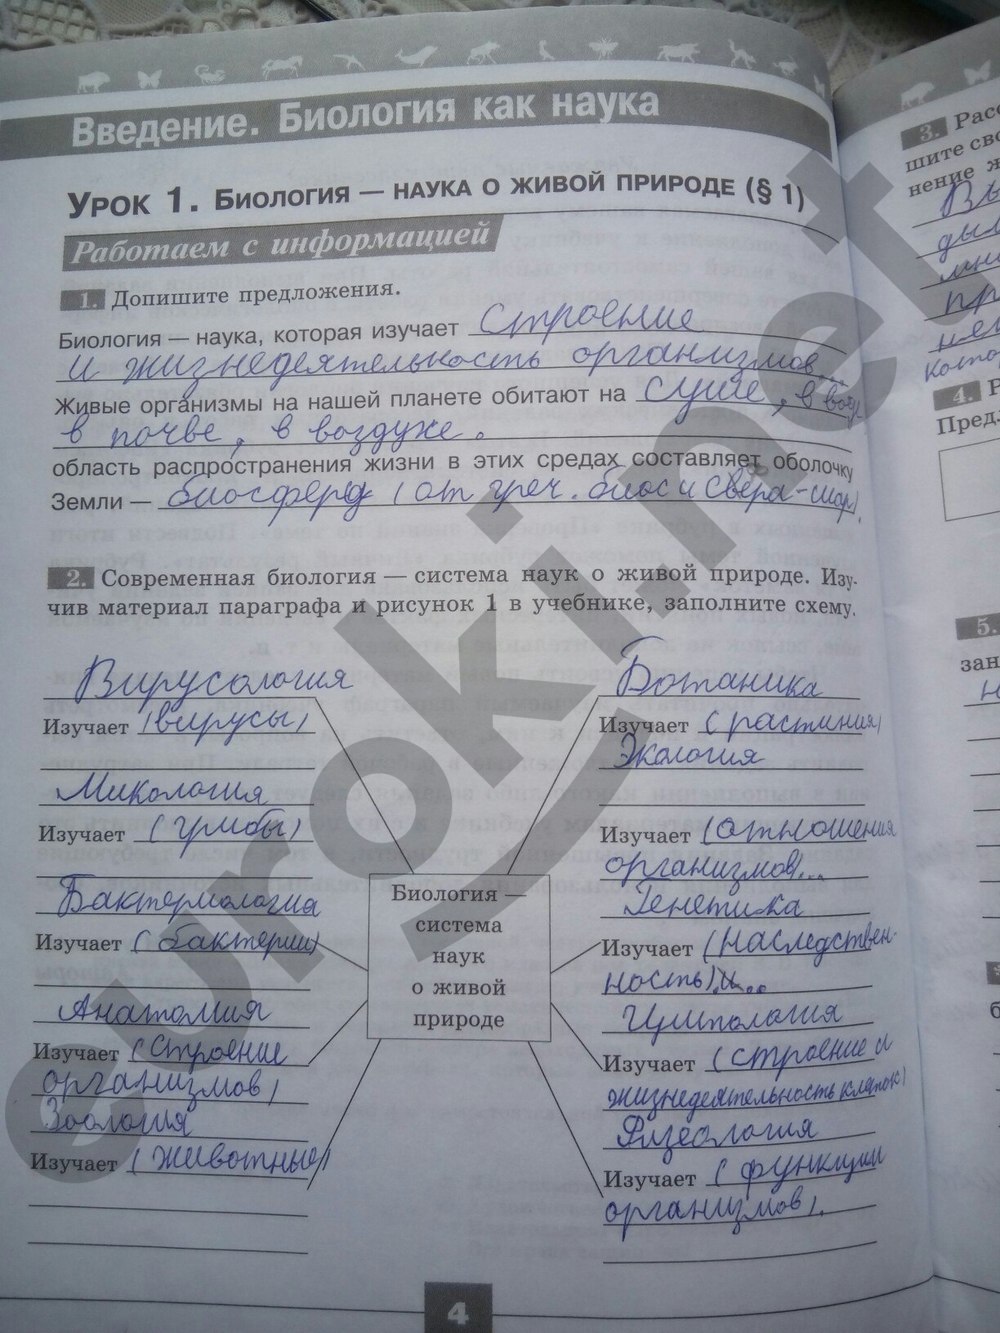 Введение. Биология как наука
Урок 1. Биология — наука о живой природе (§ 1)
Работаем с информацией
1. Допишите предложения.
Биология — наука, которая изучает строение
и жизнедеятельность организмов...
Живые организмы на нашей планете обитают на суше, в воде,
в почве, в воздухе.
область распространения жизни в этих средах составляет оболочку
Земли — биосферу (от греч. биос и свера-шар).
2. Современная биология — система наук о живой природе. Изу-
чив материал параграфа и рисунок 1 в учебнике, заполните схему.
Вирусология
Изучает (вирусы)
Микология
Изучает (грибы)
Бактериология
Изучает (бактерии)
Анатомия
Изучает (строение
организмов)
Зоология
Изучает (животные)
Биология —
система
наук
о живой
природе
Ботаника
Изучает (растиния)
Экология
Изучает (отношения
организмов)...
Генетика
Изучает (наследствен-
ность) и...
Цитология
Изучает (строение и
жизнедеятельность клеток)
Физеология
Изучает (функции
организмов).
4
3. Расс
шите сво
нение ж
Вы
4.
Пред
5.
зан
euroki.net